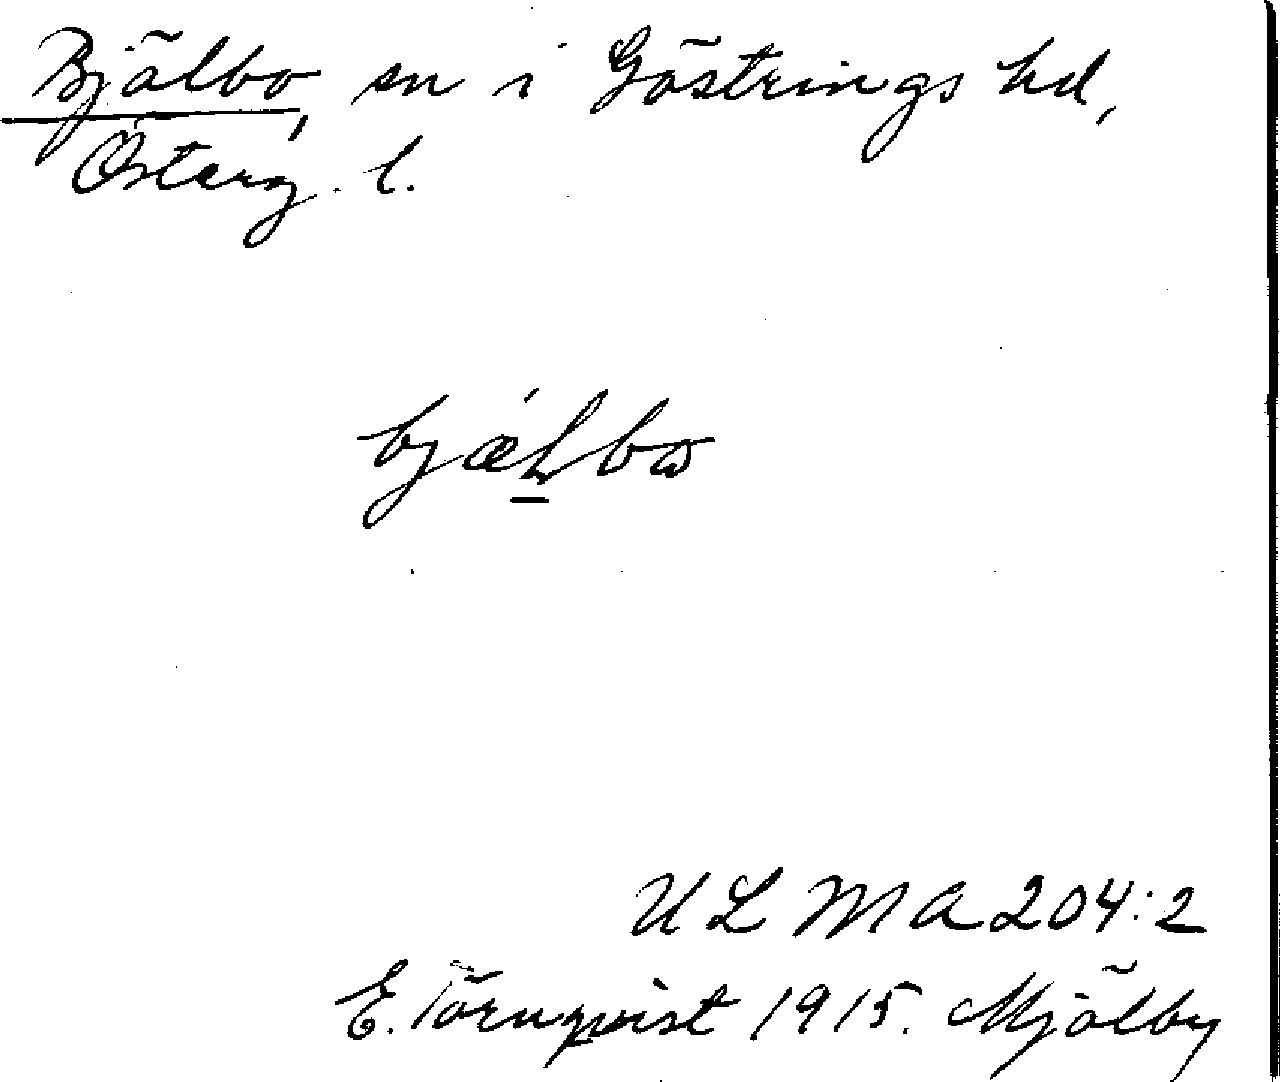 Bjälbo, sn i Göstrings hd,
Österg. l.
bjælbo
ULMA 204:2
E. Törnqvist 1915. Mjölby